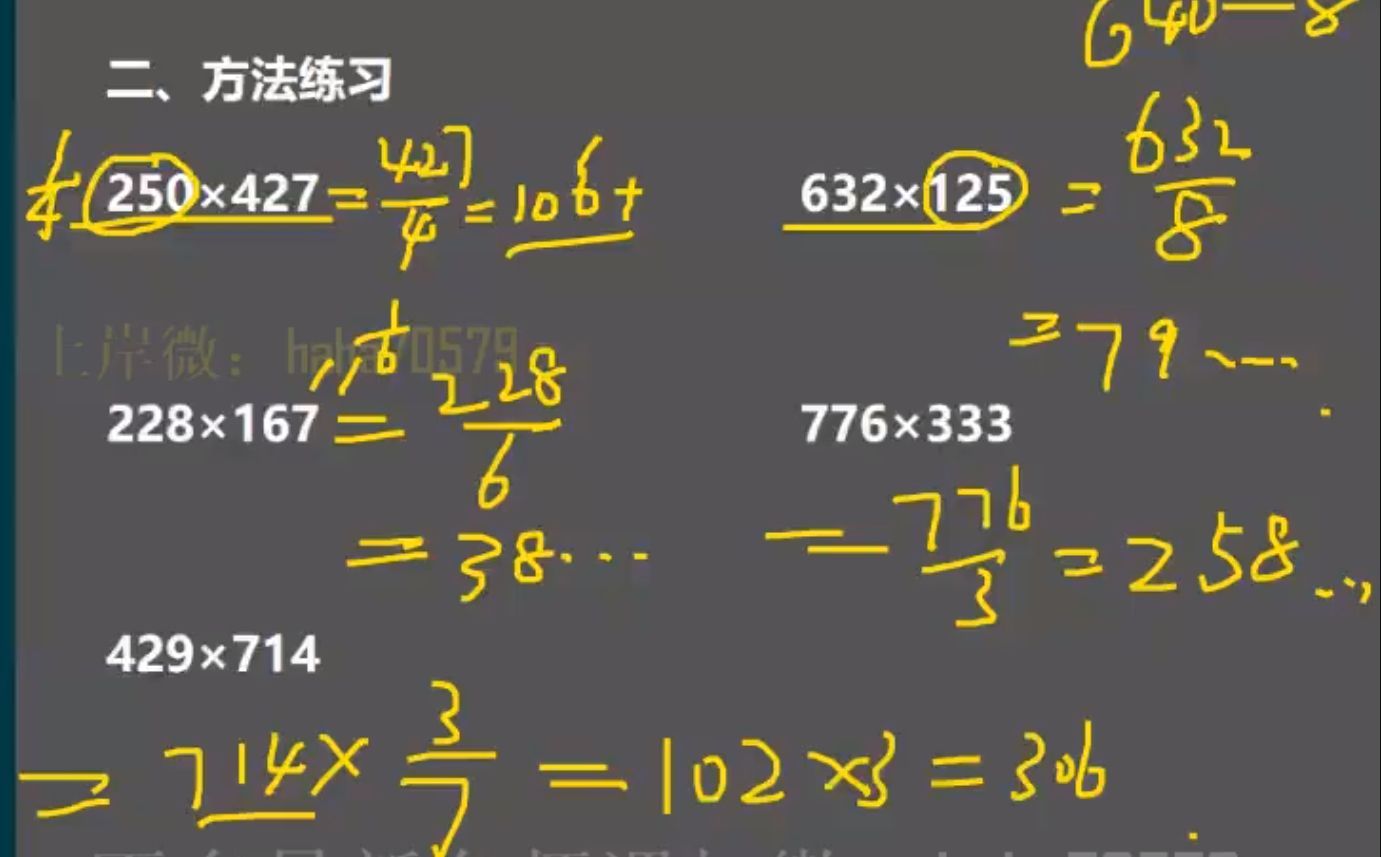 640-8
二、方法练习
1/4 250×427=427/4=106+
632×125=632/8
=79……
上岸微：haha70579
1/6
228×167=228/6
=38……
776×333
=776/3=258……
429×714
=714×3/7=102×3=306